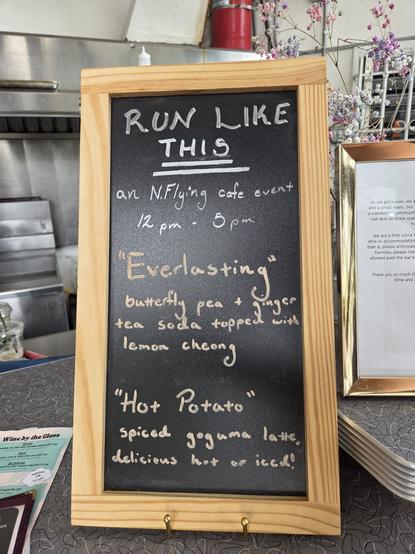 RUN LIKE
THIS
an N.Flying cafe event
12 pm - 5 pm
"Everlasting"
butterfly pea + ginger
tea soda topped with
lemon cheong
"Hot Potato"
spiced goguma latte,
delicious hot or iced!
Wine by the Glass